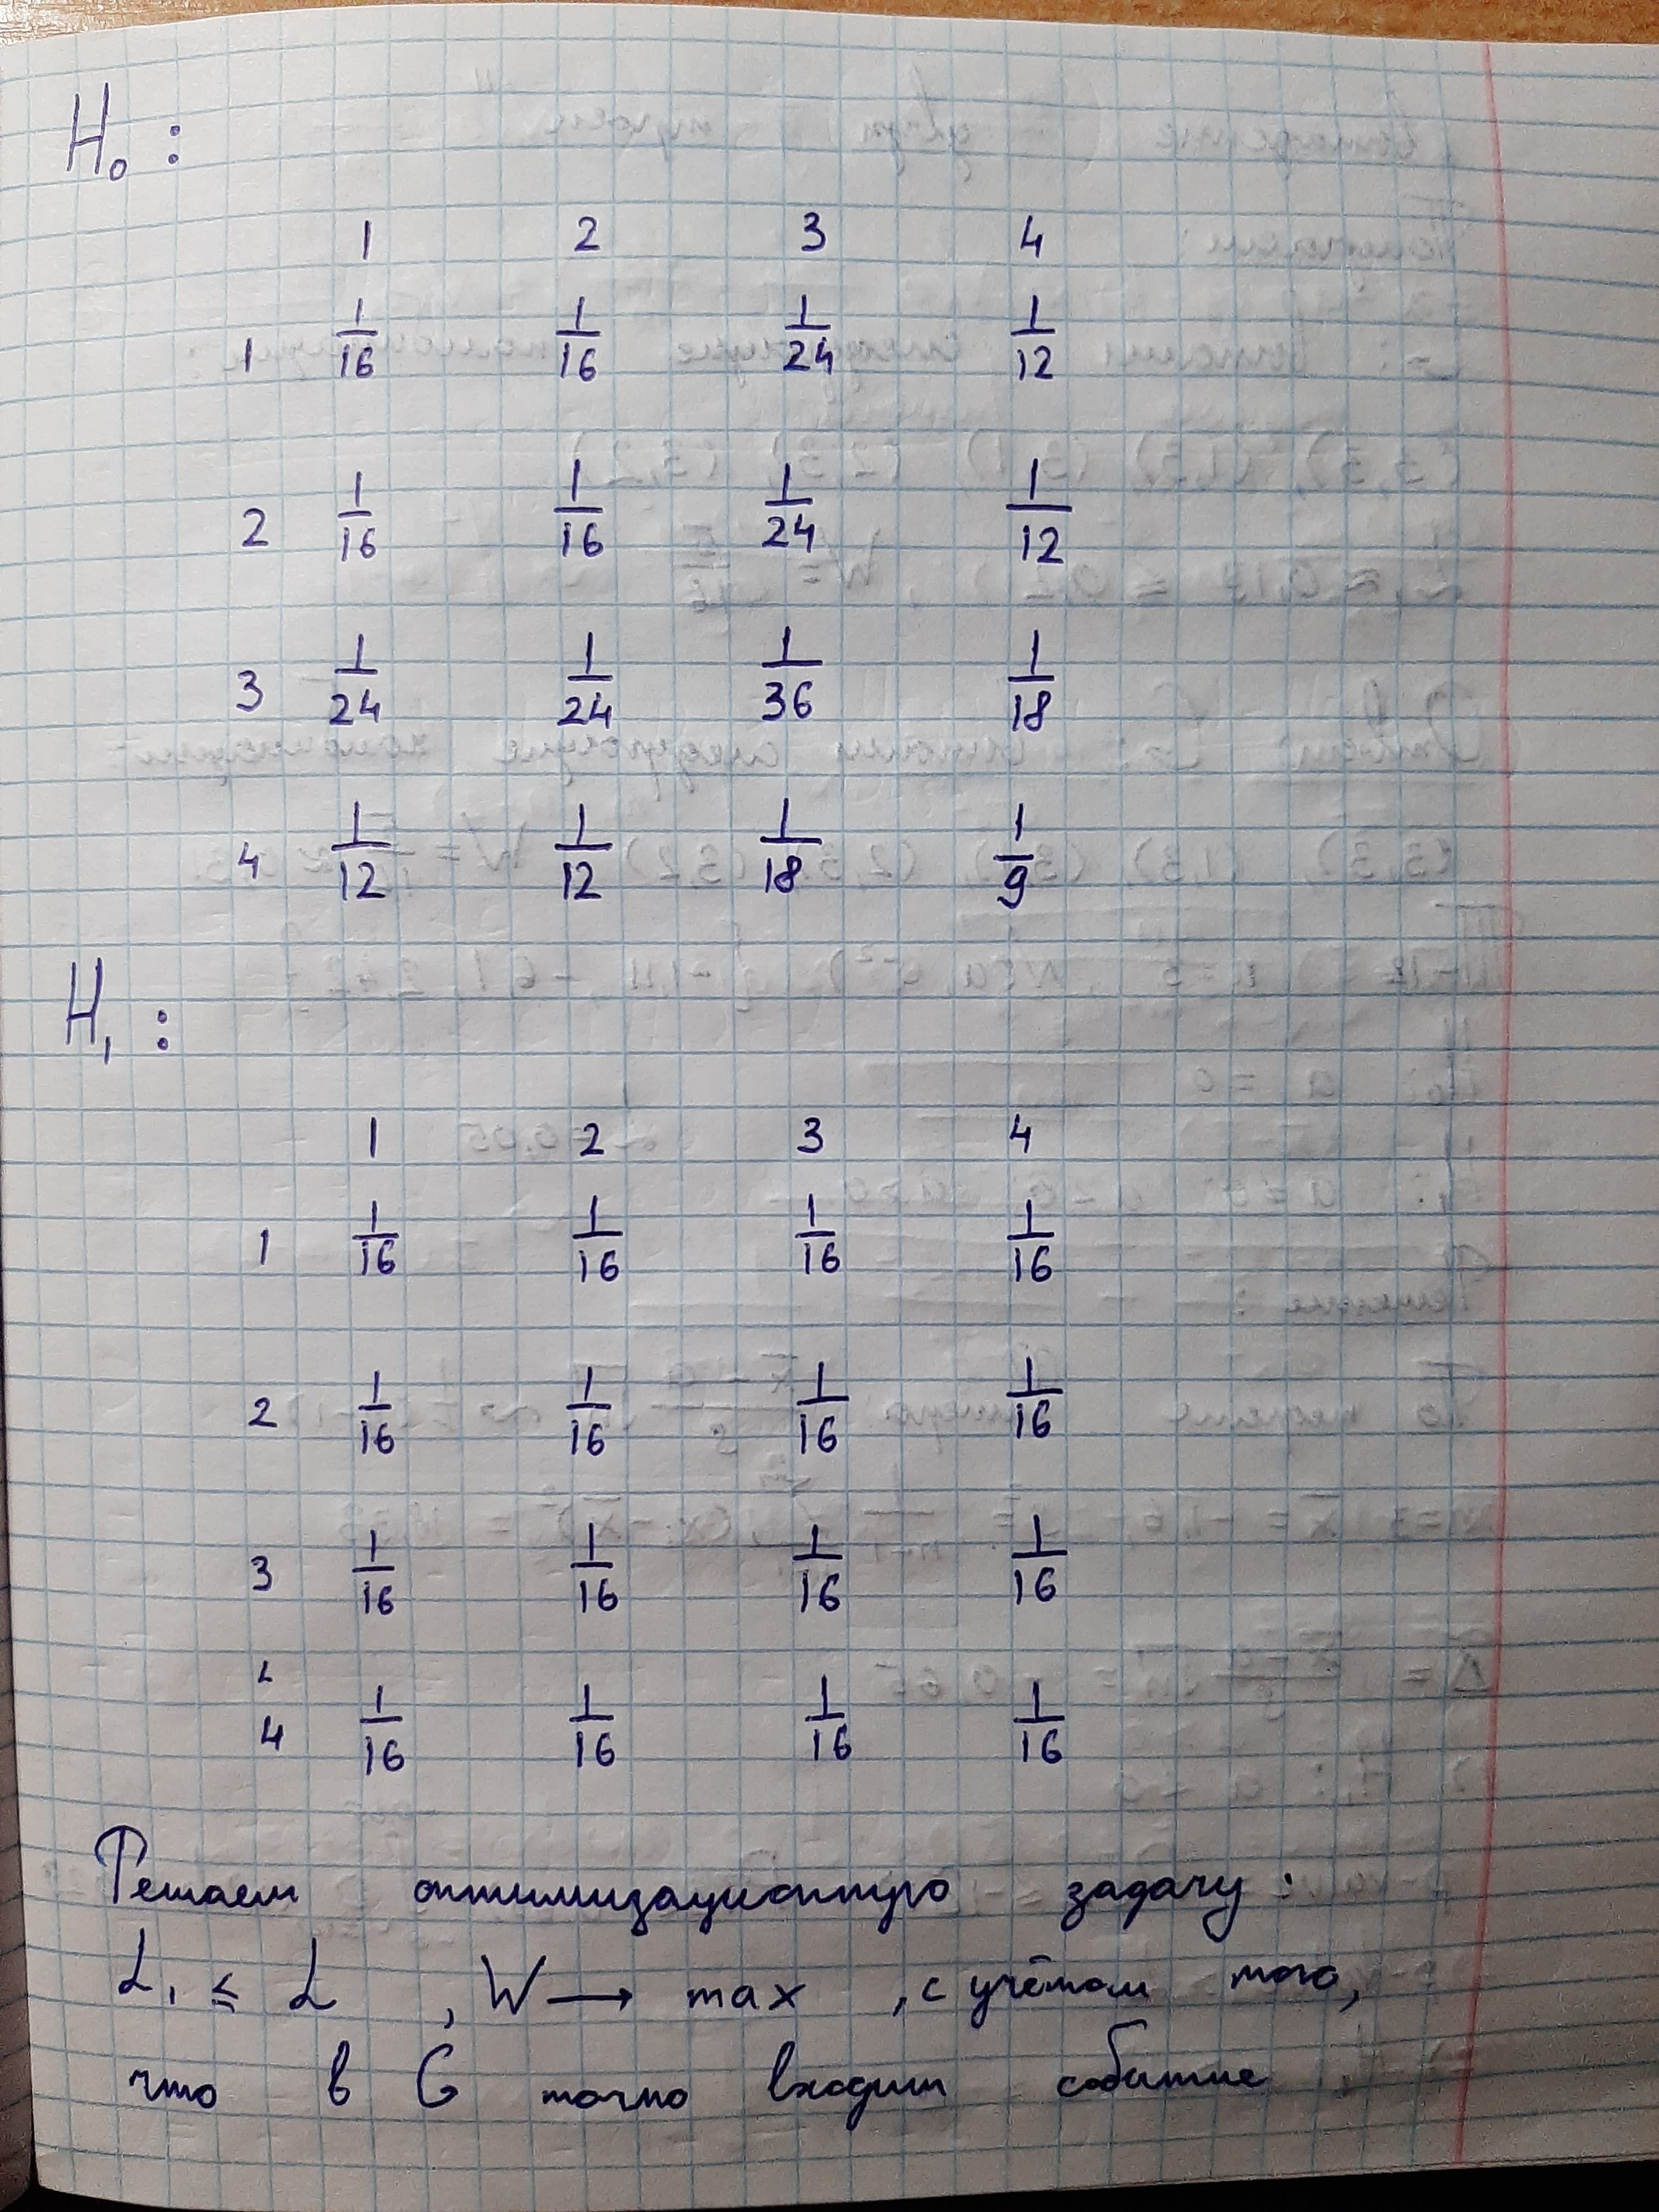 H₀ :
1 2 3 4
1 1/16 1/16 1/24 1/12
2 1/16 1/16 1/24 1/12
3 1/24 1/24 1/36 1/18
4 1/12 1/12 1/18 1/9
H₁ :
1 2 3 4
1 1/16 1/16 1/16 1/16
2 1/16 1/16 1/16 1/16
3 1/16 1/16 1/16 1/16
4 1/16 1/16 1/16 1/16
Решаем оптимизационную задачу:
α₁ ≤ α , W → max , с учётом того,
что в G точно входит событие